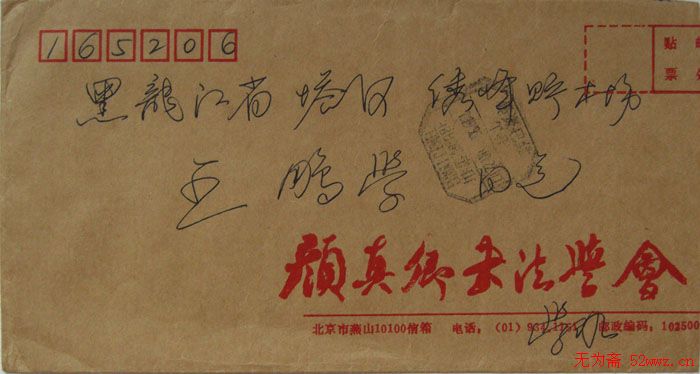 165206
贴 邮
票 处
黑龙江省 塔河 绣峰贮木场
王 鹏 学 同志
顔真卿书法学會
北京市燕山10100信箱 电话：（01）934 邮政编码：102500
无为斋 52wwz.cn